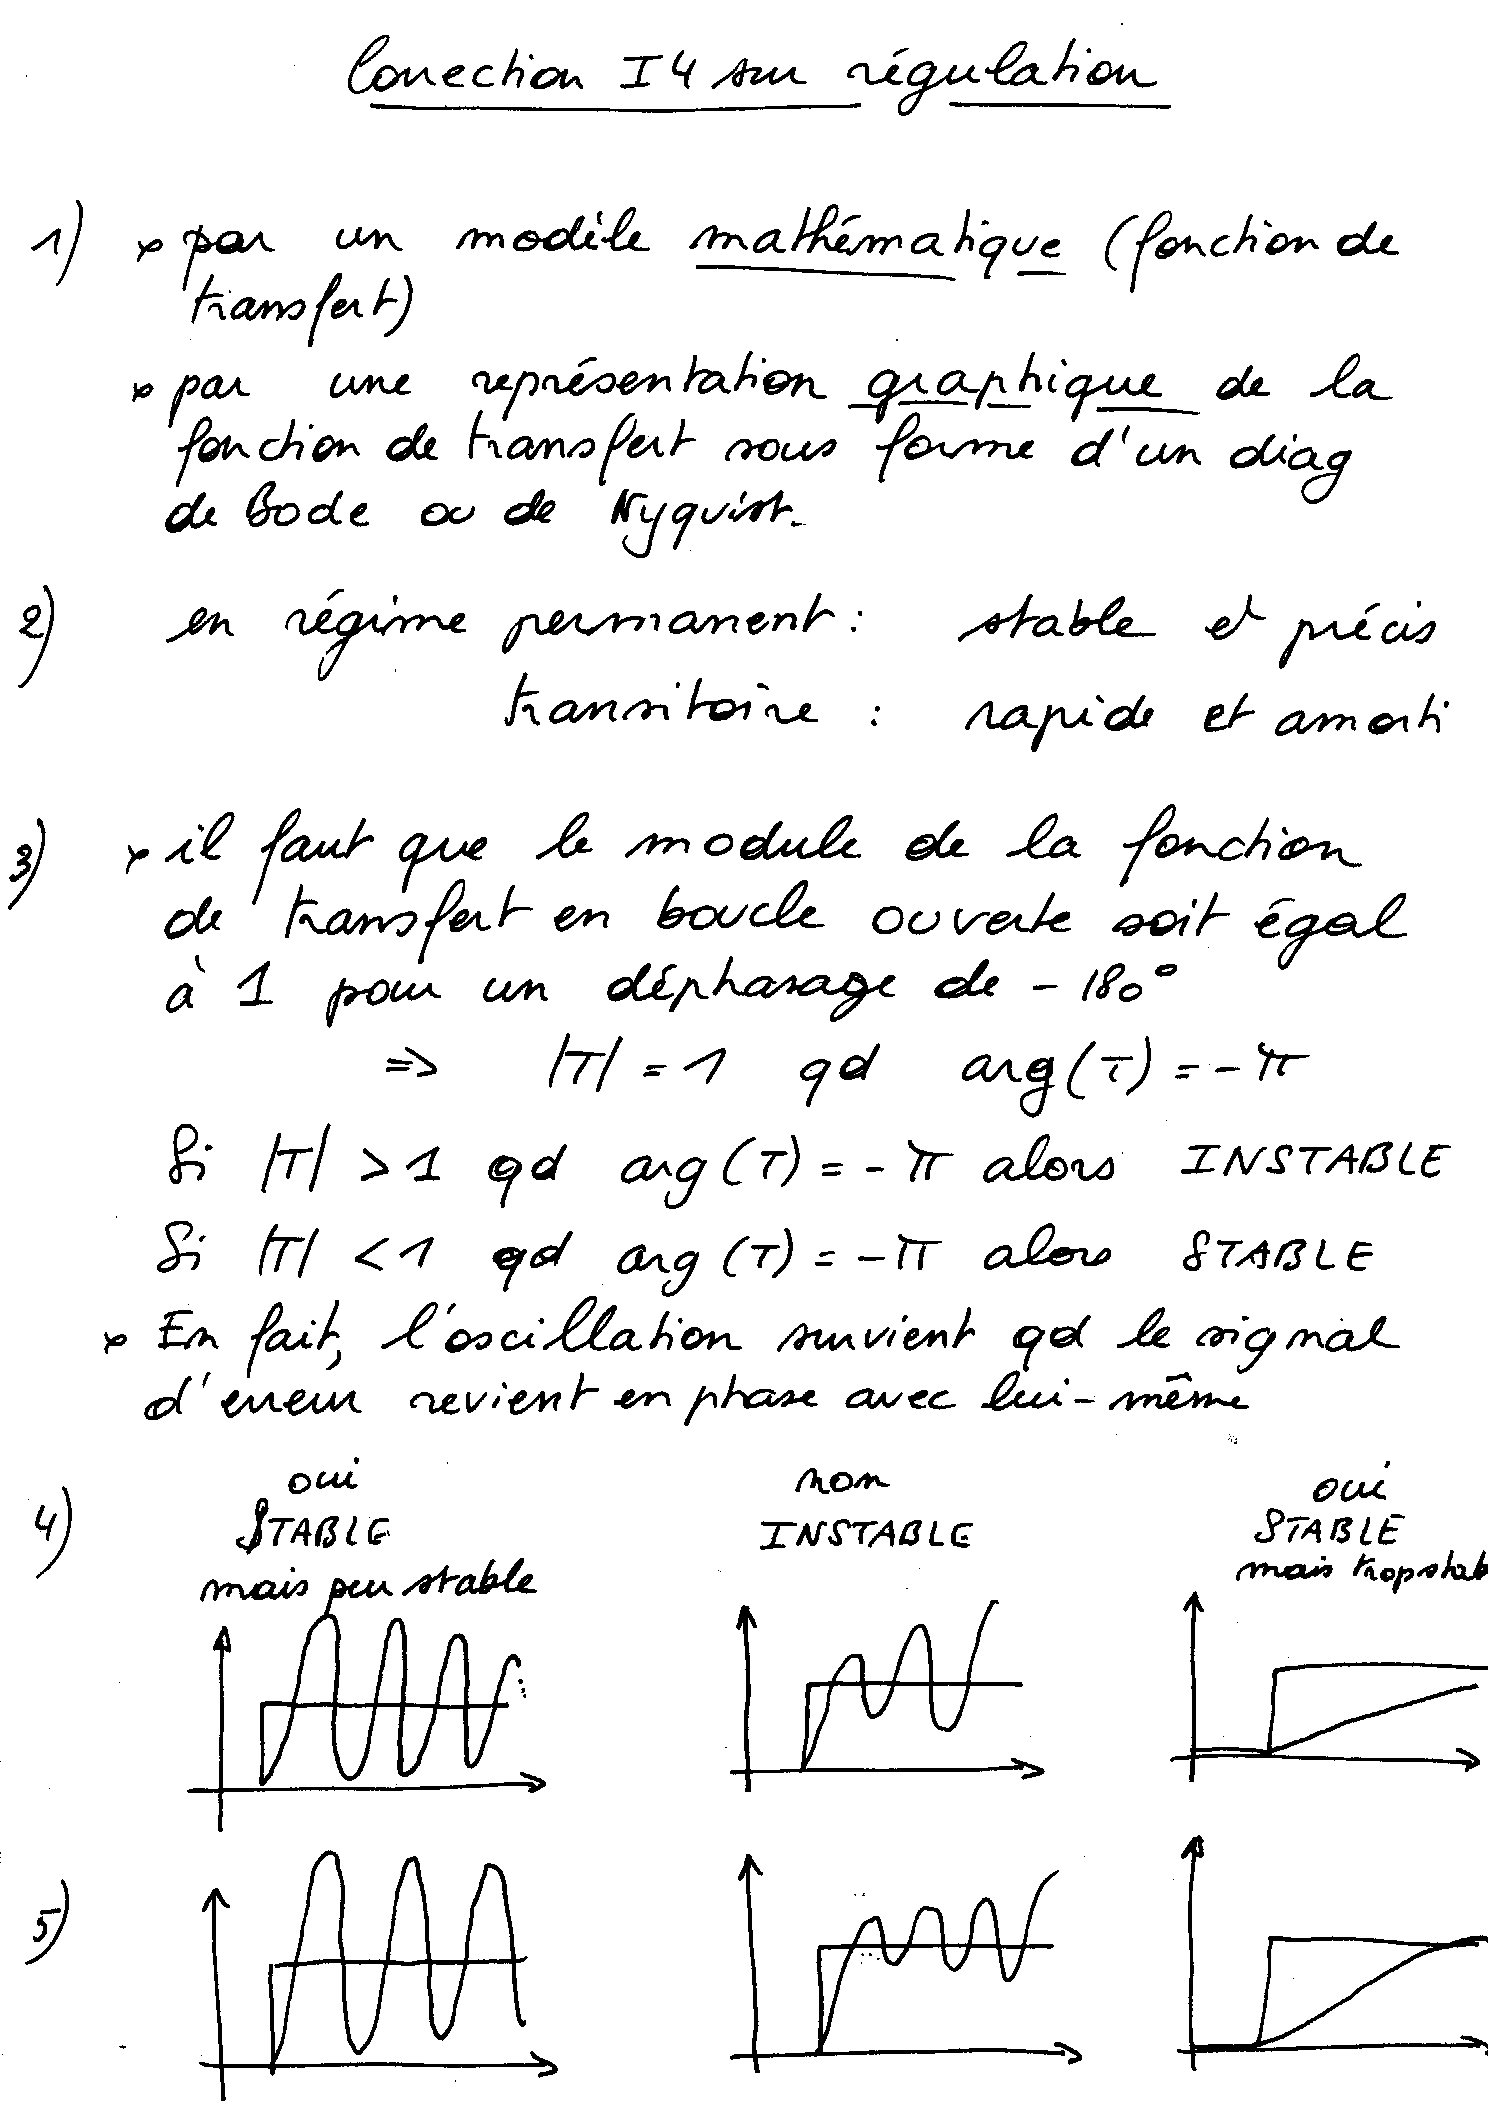 Correction I4 sur régulation
1) × par un modèle mathématique (fonction de
transfert)
× par une représentation graphique de la
fonction de transfert sous forme d'un diag
de Bode ou de Nyquist.
2) en régime permanent : stable et précis
transitoire : rapide et amorti
3) × il faut que le module de la fonction
de transfert en boucle ouverte soit égal
à 1 pour un déphasage de - 180°
=> |T| = 1 qd arg(T) = - π
Si |T| > 1 qd arg(T) = - π alors INSTABLE
Si |T| < 1 qd arg(T) = - π alors STABLE
× En fait, l'oscillation survient qd le signal
d'erreur revient en phase avec lui-même
4) oui non oui
STABLE INSTABLE STABLE
mais peu stable mais trop stab
5)